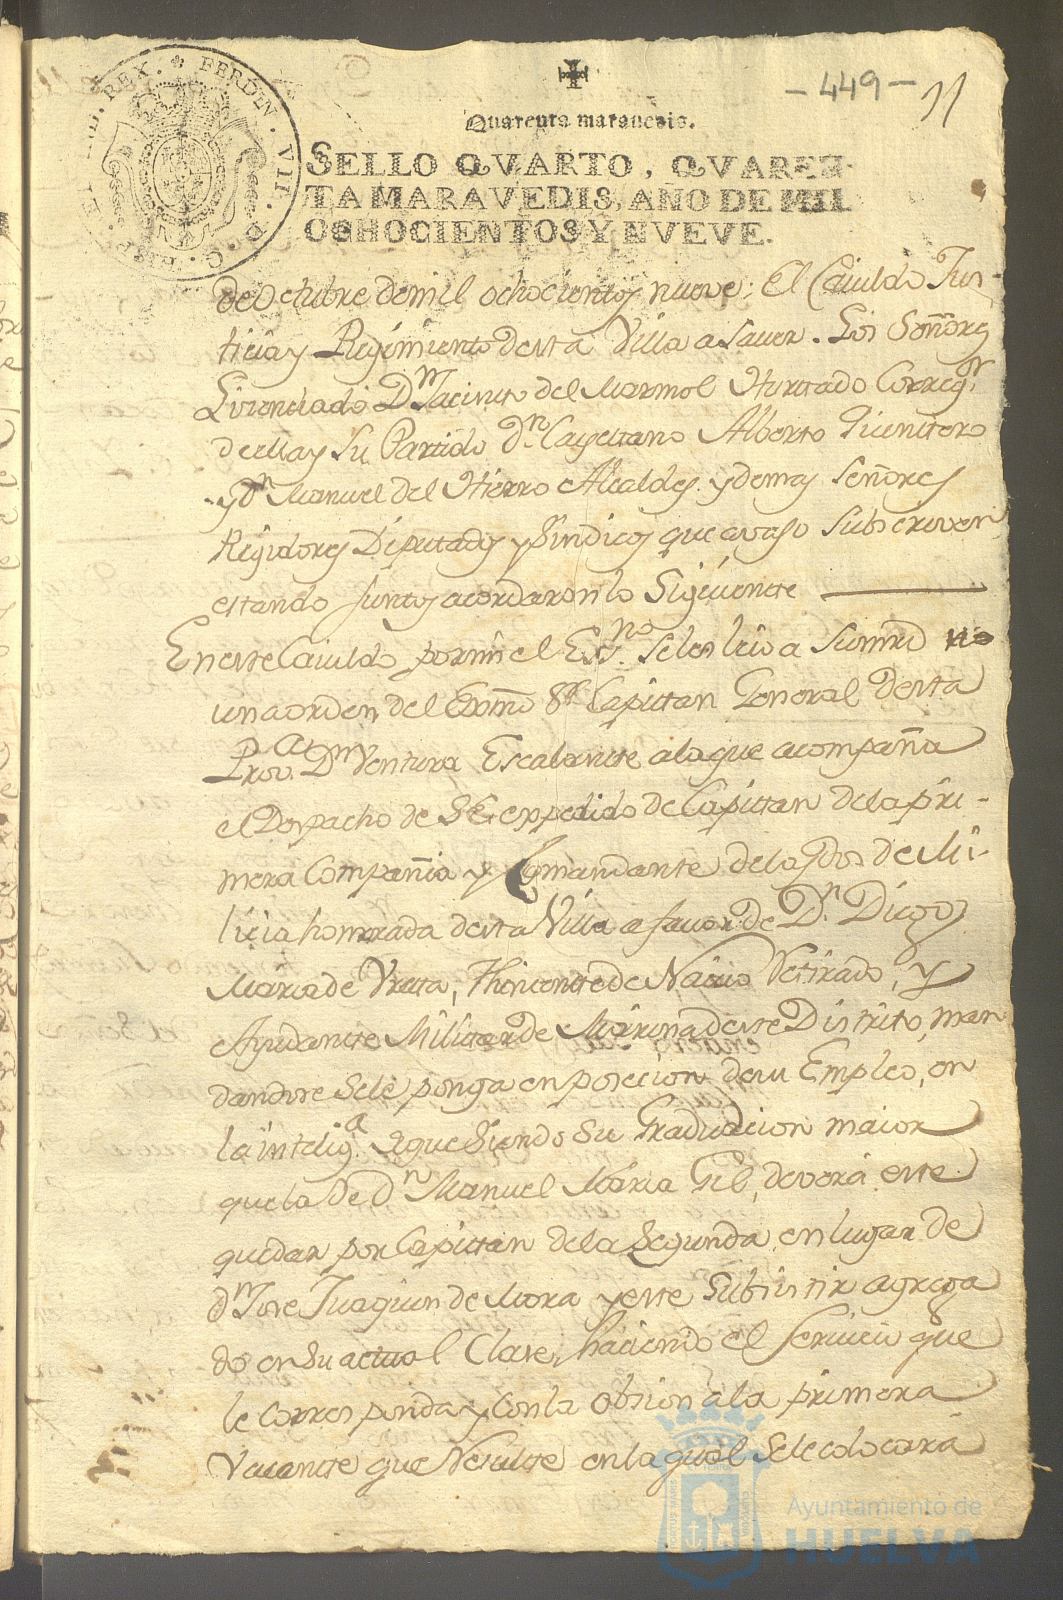 FERDIN. VII. D. G. HISP. ET IND. REX.
- 449 - 11
Quarenta maravedis.
SELLO QVARTO, QVAREN-
TA MARAVEDIS, AÑO DE MIL
OCHOCIENTOS Y NVEVE.
de Octubre de mil ochocientos nueve: El Cavildo Jus-
ticia y Regimiento desta Villa a saver. Los Señores
Licenciado Dn Jacinto del Marmol Hurtado Corregr
de ella y su Partido dn Cayettano Alberto Quintero
y dn Manuel del Hierro Alcaldes y demas Señores
Regidores Diputados y Sindicos que avaso subscriven
estando juntos acordaron lo Siguiente
En este Cavildo por mi el Esno se les leio a su mrd
una orden del Exmo Sr Capittan General desta
Prova Dn Ventura Escalante a la que acompaña
el Despacho de S E expedido de Capittan de la pri-
mera Compañia y Comandante de las dos de Mi-
licia honrrada desta Villa a favor de Dn Diego
Maria de Vreta, Theniente de Navio Retirado, y
Ayudante Militar de Marina de este Distrito, man
dandose se le ponga en posecion de su Empleo, en
la inteliga de que siendo su Graduacion maior
que la de dn Manuel Maria Gil, devera este
quedar por Capittan de la Segunda en lugar de
dn Jose Juaquin de Mora y este subsistir agrega
do en su actual Clase, haciendo el servicio que
le corresponda y con la obsion a la primera
Vacante que Resulte en la qual se le colocará
Ayuntamiento de
HUELVA